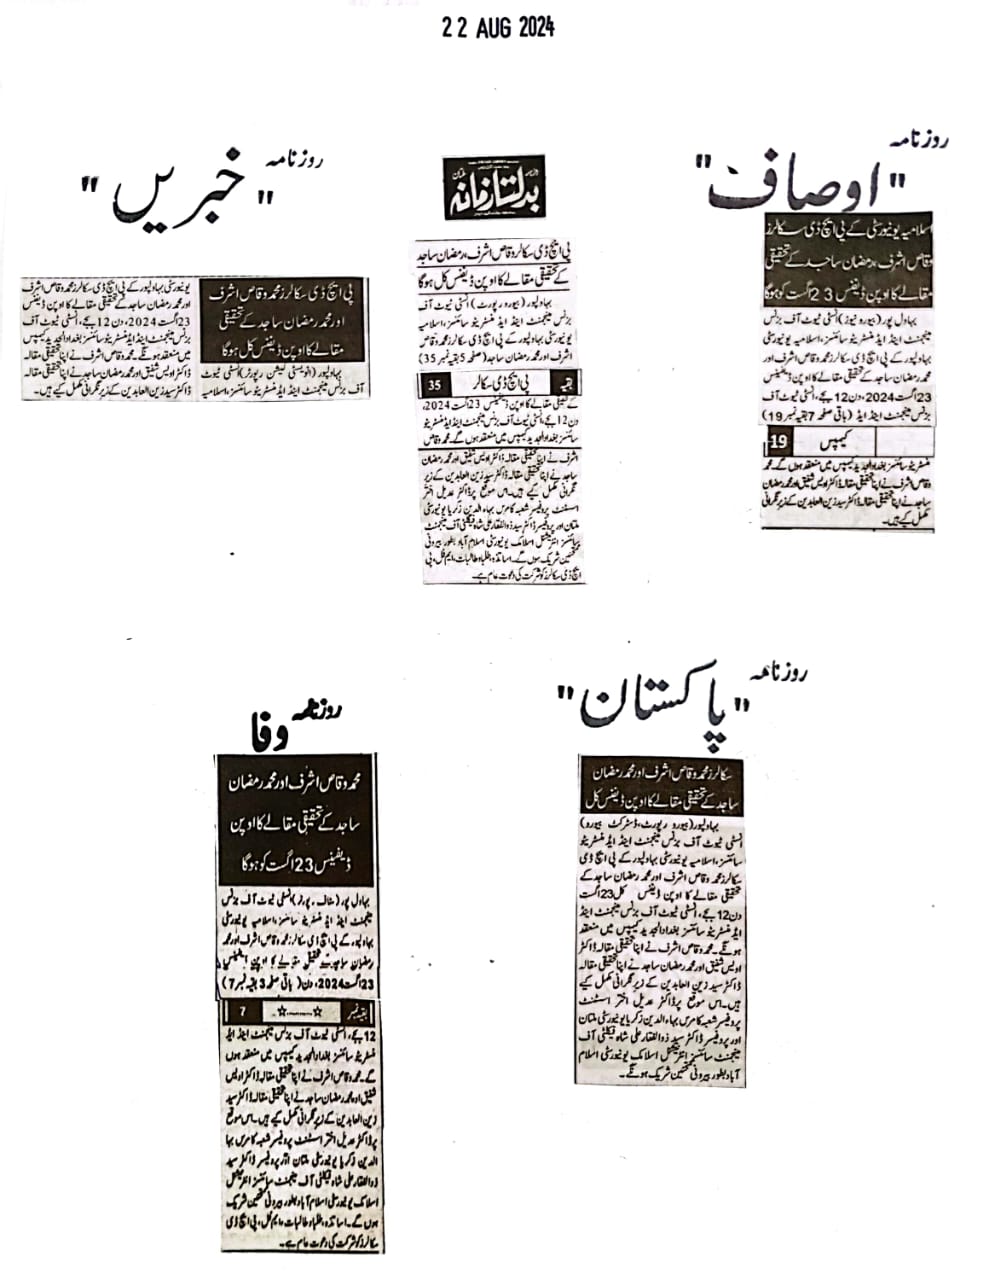 22 AUG 2024
روزنامہ
"خبریں"
پی ایچ ڈی سکالرز محمد وقاص اشرف
اور محمد رمضان ساجد کے تحقیقی
مقالے کا اوپن ڈیفنس کل ہوگا
بہاولپور (ایڈیشنل رپورٹر) انسٹی ٹیوٹ
آف بزنس مینجمنٹ اینڈ ایڈمنسٹریٹو سائنسز، اسلامیہ
یونیورسٹی بہاولپور کے پی ایچ ڈی سکالرز محمد وقاص اشرف
اور محمد رمضان ساجد کے تحقیقی مقالے کا اوپن ڈیفنس
23 اگست 2024، دن 12 بجے، انسٹی ٹیوٹ آف
بزنس مینجمنٹ اینڈ ایڈمنسٹریٹو سائنسز بغداد الجدید کیمپس
میں منعقد ہونگے۔ محمد وقاص اشرف نے اپنا تحقیقی مقالہ
ڈاکٹر اویس شفیق اور محمد رمضان ساجد نے اپنا تحقیقی مقالہ
ڈاکٹر سید زین العابدین کے زیر نگرانی مکمل کیے ہیں۔
بدلتا زمانہ
پی ایچ ڈی سکالر وقاص اشرف، رمضان ساجد
کے تحقیقی مقالے کا اوپن ڈیفنس کل ہوگا
بہاولپور (بیورو رپورٹ) انسٹی ٹیوٹ آف
بزنس مینجمنٹ اینڈ ایڈمنسٹریٹو سائنسز، اسلامیہ
یونیورسٹی بہاولپور کے پی ایچ ڈی سکالرز محمد وقاص
اشرف اور محمد رمضان ساجد (صفحہ 5 بقیہ نمبر 35)
بقیہ پی ایچ ڈی سکالر 35
کے تحقیقی مقالے کا اوپن ڈیفنس 23 اگست 2024،
دن 12 بجے، انسٹی ٹیوٹ آف بزنس مینجمنٹ اینڈ ایڈمنسٹریٹو
سائنسز بغداد الجدید کیمپس میں منعقد ہوں گے۔ محمد وقاص
اشرف نے اپنا تحقیقی مقالہ ڈاکٹر اویس شفیق اور محمد رمضان
ساجد نے اپنا تحقیقی مقالہ ڈاکٹر سید زین العابدین کے زیر
نگرانی مکمل کیے ہیں۔ اس موقع پر ڈاکٹر عدیل اختر
اسسٹنٹ پروفیسر شعبہ کامرس بہاء الدین زکریا یونیورسٹی
ملتان اور پروفیسر ڈاکٹر سید ذوالفقار علی شاہ فیکلٹی آف مینجمنٹ
سائنسز انٹرنیشنل اسلامک یونیورسٹی اسلام آباد بطور بیرونی
ممتحنین شریک ہوں گے۔ اساتذہ، طلبا و طالبات، ایم فل، پی
ایچ ڈی سکالرز کو شرکت کی دعوت عام ہے۔
روزنامہ
"اوصاف"
اسلامیہ یونیورسٹی کے پی ایچ ڈی سکالرز
وقاص اشرف، رمضان ساجد کے تحقیقی
مقالے کا اوپن ڈیفنس 23 اگست کو ہوگا
بہاول پور (بیورو نیوز) انسٹی ٹیوٹ آف بزنس
مینجمنٹ اینڈ ایڈمنسٹریٹو سائنسز، اسلامیہ یونیورسٹی
بہاولپور کے پی ایچ ڈی سکالرز محمد وقاص اشرف اور
محمد رمضان ساجد کے تحقیقی مقالے کا اوپن ڈیفینس
23 اگست 2024، دن 12 بجے، انسٹی ٹیوٹ آف
بزنس مینجمنٹ اینڈ ایڈ (باقی صفحہ 7 بقیہ نمبر 19)
کیمپس 19
منسٹریٹو سائنسز بغداد الجدید کیمپس میں منعقد ہوں گے۔ محمد
وقاص اشرف نے اپنا تحقیقی مقالہ ڈاکٹر اویس شفیق اور محمد رمضان
ساجد نے اپنا تحقیقی مقالہ ڈاکٹر سید زین العابدین کے زیر نگرانی
مکمل کیے ہیں۔
روزنامہ
وفا
محمد وقاص اشرف اور محمد رمضان
ساجد کے تحقیقی مقالے کا اوپن
ڈیفینس 23 اگست کو ہوگا
بہاول پور (سٹاف رپورٹر) انسٹی ٹیوٹ آف بزنس
مینجمنٹ اینڈ ایڈمنسٹریٹو سائنسز، اسلامیہ یونیورسٹی
بہاولپور کے پی ایچ ڈی سکالرز محمد وقاص اشرف اور محمد
رمضان ساجد کے تحقیقی مقالے کا اوپن ڈیفینس
23 اگست 2024، دن (باقی صفحہ 3 بقیہ نمبر 7)
بقیہ نمبر 7
12 بجے، انسٹی ٹیوٹ آف بزنس مینجمنٹ اینڈ ایڈ
منسٹریٹو سائنسز بغداد الجدید کیمپس میں منعقد ہوں
گے۔ محمد وقاص اشرف نے اپنا تحقیقی مقالہ ڈاکٹر اویس
شفیق اور محمد رمضان ساجد نے اپنا تحقیقی مقالہ ڈاکٹر سید
زین العابدین کے زیر نگرانی مکمل کیے ہیں۔ اس موقع
پر ڈاکٹر عدیل اختر اسسٹنٹ پروفیسر شعبہ کامرس بہا
الدین زکریا یونیورسٹی ملتان اور پروفیسر ڈاکٹر سید
ذوالفقار علی شاہ فیکلٹی آف مینجمنٹ سائنسز انٹرنیشنل
اسلامک یونیورسٹی اسلام آباد بطور بیرونی ممتحنین شریک
ہوں گے۔ اساتذہ، طلباء و طالبات، ایم فل، پی ایچ ڈی
سکالرز کو شرکت کی دعوت عام ہے۔
روزنامہ
"پاکستان"
سکالرز محمد وقاص اشرف اور محمد رمضان
ساجد کے تحقیقی مقالے کا اوپن ڈیفنس کل
بہاولپور (بیورو رپورٹ، ڈسٹرکٹ بیورو)
انسٹی ٹیوٹ آف بزنس مینجمنٹ اینڈ ایڈمنسٹریٹو
سائنسز، اسلامیہ یونیورسٹی بہاولپور کے پی ایچ ڈی
سکالرز محمد وقاص اشرف اور محمد رمضان ساجد کے
تحقیقی مقالے کا اوپن ڈیفنس کل 23 اگست
دن 12 بجے، انسٹی ٹیوٹ آف بزنس مینجمنٹ اینڈ
ایڈمنسٹریٹو سائنسز بغداد الجدید کیمپس میں منعقد
ہونگے۔ محمد وقاص اشرف نے اپنا تحقیقی مقالہ ڈاکٹر
اویس شفیق اور محمد رمضان ساجد نے اپنا تحقیقی مقالہ
ڈاکٹر سید زین العابدین کے زیر نگرانی مکمل کیے
ہیں۔ اس موقع پر ڈاکٹر عدیل اختر اسسٹنٹ
پروفیسر شعبہ کامرس بہاء الدین زکریا یونیورسٹی ملتان
اور پروفیسر ڈاکٹر سید ذوالفقار علی شاہ فیکلٹی آف
مینجمنٹ سائنسز انٹرنیشنل اسلامک یونیورسٹی اسلام
آباد بطور بیرونی ممتحنین شریک ہونگے۔